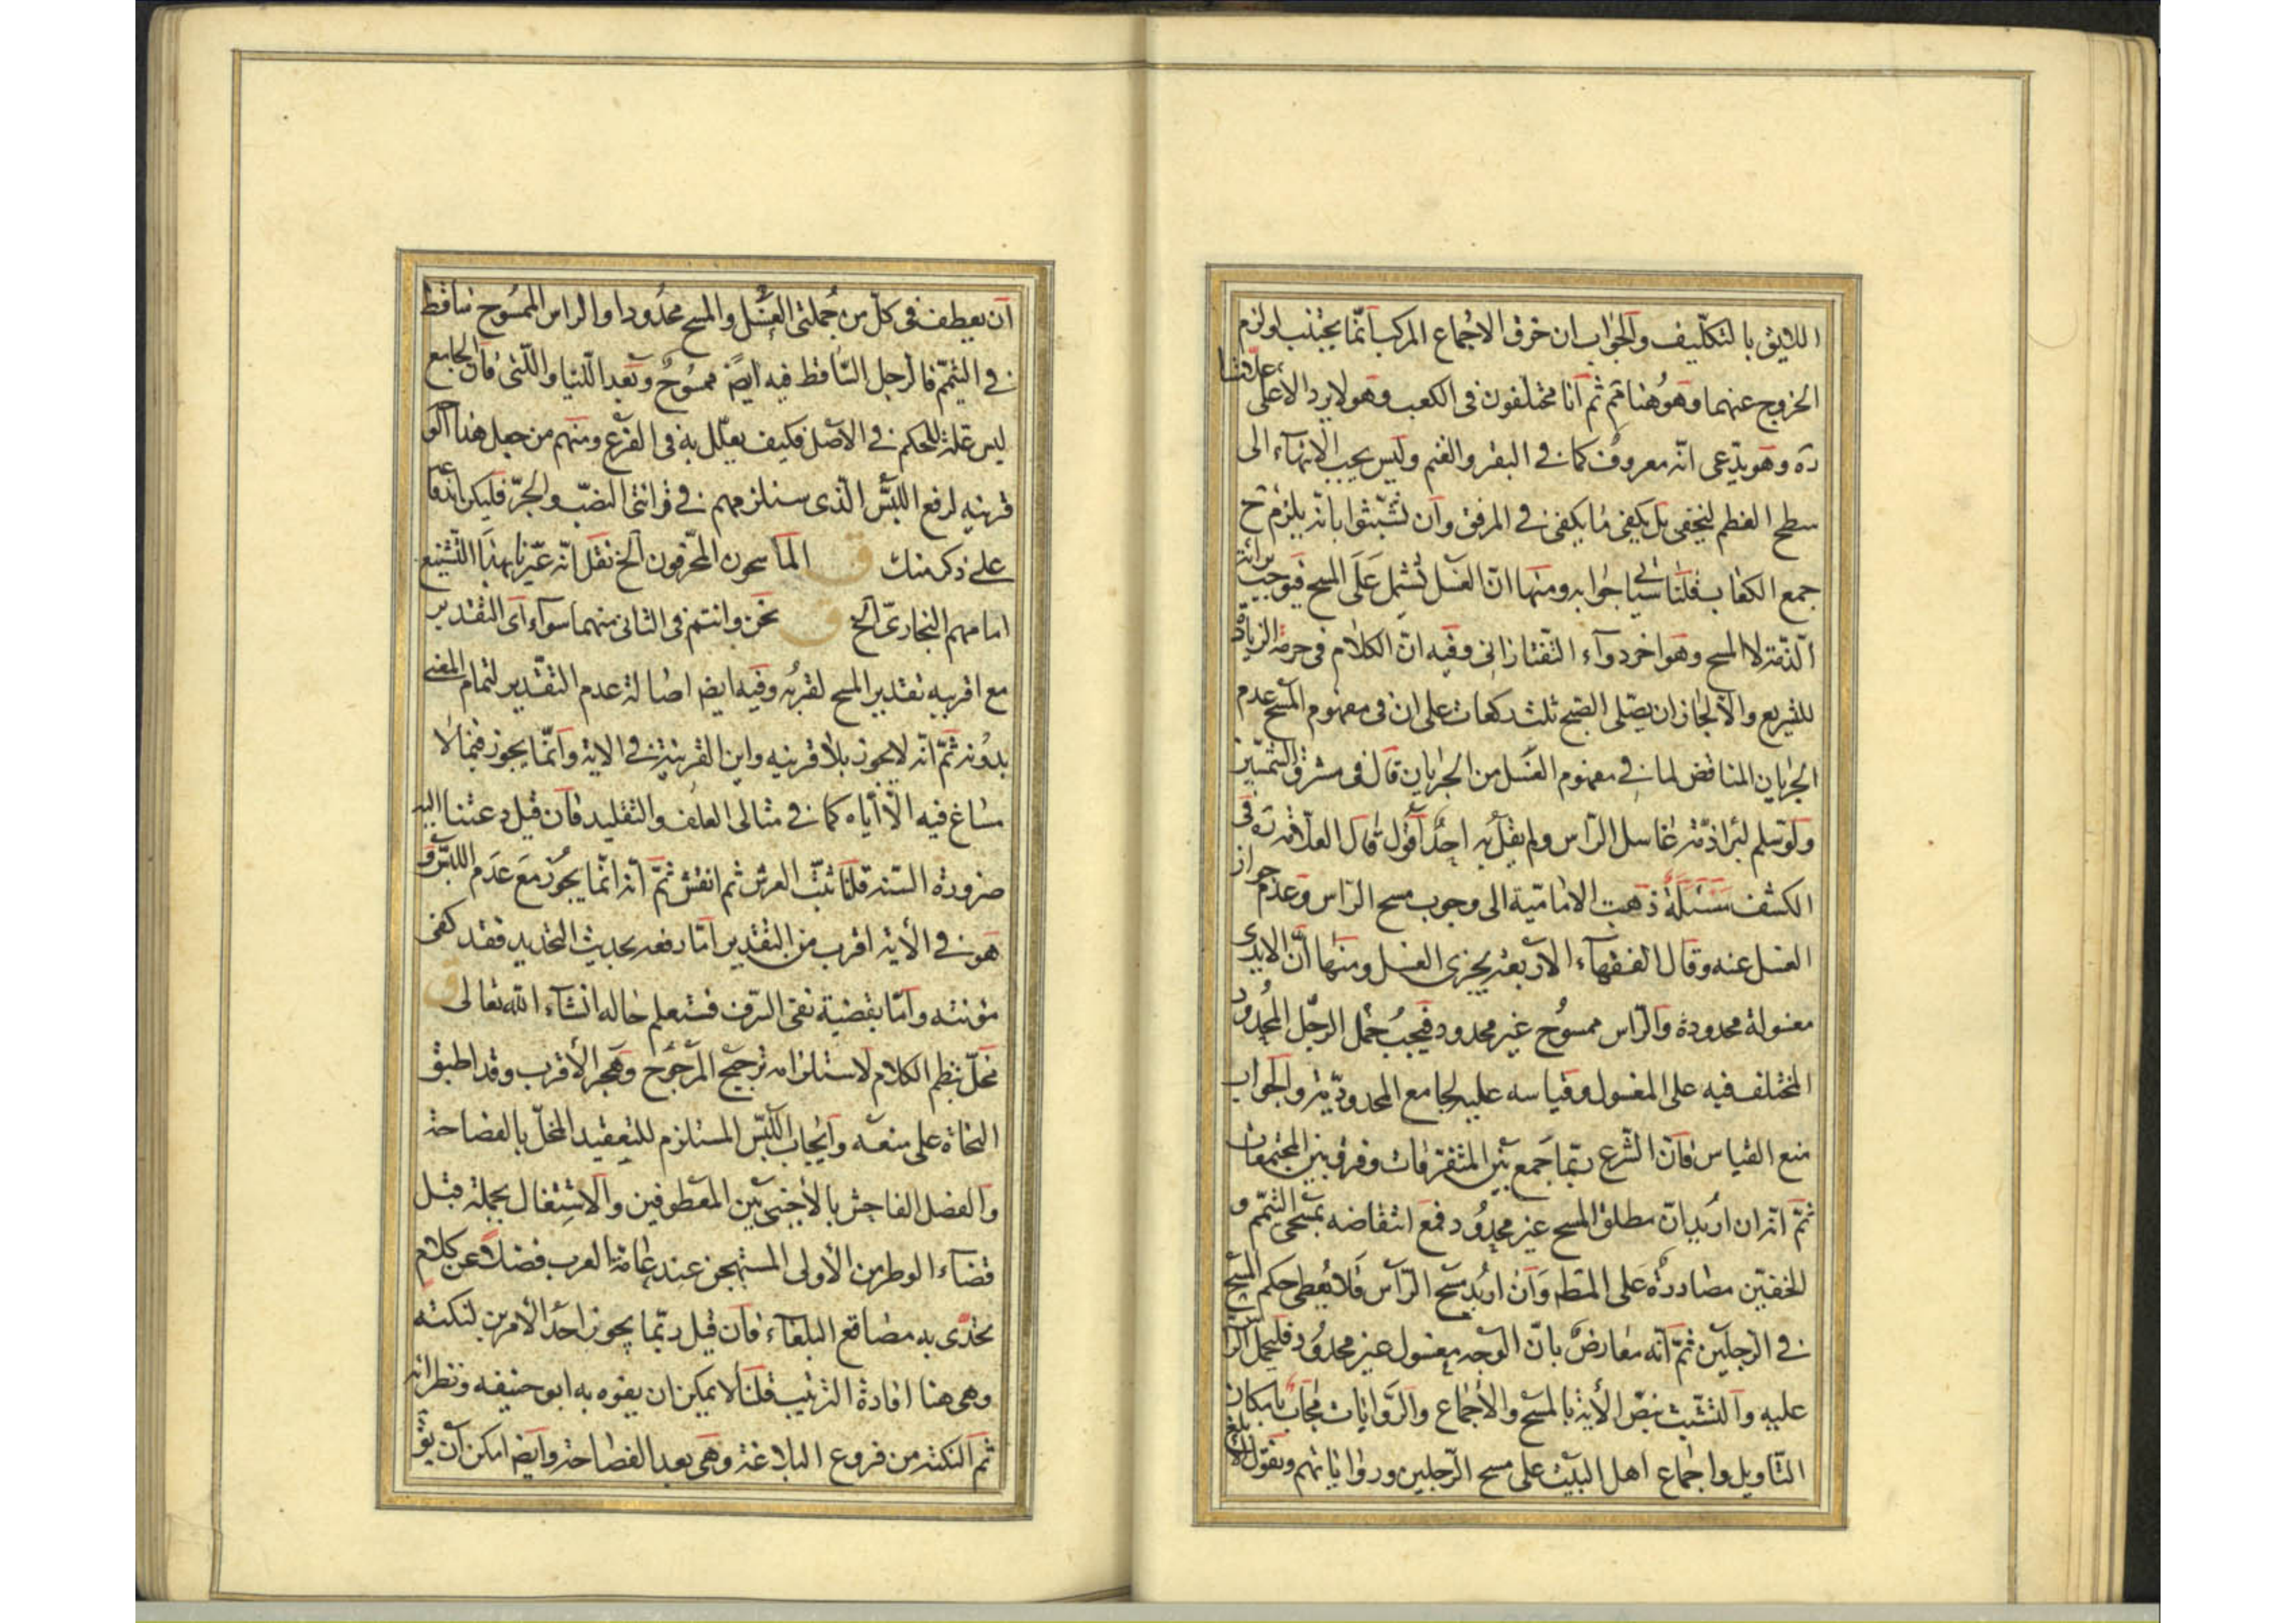 اللايق بالتكليف والجواب ان خرق الاجماع المركب انّما يجتنب لو لزم
الخروج عنهما وهو هنا ثم انا مختلفون فى الكعب وهو لا يرد الا على علّامتنا
ره وهو يدّعى انّه معروف كما فى البقر والغنم وليس يجب الانتهاء الى
سطح العظم ليخفى بل يكفى ما يكفى فى المرفق وان تشبّثوا بانّه يلزم ح
جمع الكعاب قلنا سياتى جوابه ومنها انّ الغسل تشمل على المسح فيوجب براءة
الذّمة لا المسح وهو اخر دواء التفتازانى وفيه انّ الكلام فى حرمة الزيادة
للتشريع والا لجاز ان يصلى الصبح ثلث ركعات على ان فى مفهوم المسح عدم
الجريان المناقض لما فى مفهوم الغسل من الجريان قال فى مشرق الشمسين
ولو سلم لبرا ذمّة غاسل الراس ولم يقل به احد اقول قال العلامة ره فى
الكشف مسئلة ذهبت الامامية الى وجوب مسح الراس وعدم جواز
الغسل عنه وقال الفقهاء الاربعة يجزى الغسل ومنها انّ الايدى
مغسولة محدودة والراس ممسوح غير محدود فيجب حمل الرجل المحدود
المختلف فيه على المغسول وقياسه عليه لجامع المحدوديّة والجواب
منع القياس فانّ الشرع ربّما جمع بين المتفرقات وفرق بين المجتمعات
ثمّ انّه ان اريد انّ مطلق المسح غير محدود فمع انتقاضه بمسحى التيمّم و
الخفين مصادرة على المط وان اريد مسح الراس فلا يعطى حكم المسح
فى الرجلين ثمّ انّه معارض بانّ الوجه مغسول غير محدود فليحمل الرّاس
عليه والتشبث بنصّ الاية بالمسح والاجماع والروايات مجاب بامكان
التاويل واجماع اهل البيت على مسح الرجلين ورواياتهم ونقول الابلغ
ان يعطف فى كلّ من جملتى الغسل والمسح محدودا والراس الممسوح ساقط
فى التيمّم فالرجل السّاقط فيه ايضً ممسوح وبعد اللّتيا واللّتى فانّ الجامع
ليس علة للحكم فى الاصل فكيف يعلّل به فى الفرع ومنهم من جعل هذا
قرينه لرفع اللبس الّذى سنلزمهم فى قرائتى النصب والجرّ فليكن اندفاعه
على ذكر منك ق الماسحون المحّرفون الخ نقل انّه عيّرنا بهذا التشنيع
امامهم البخارىّ الخ ق نحن وانتم فى الثانى منهما سواء اى التقدير
مع اقربيه تقدير المسح لقربه وفيه ايضً اصالة عدم التقدير لتمام المعنى
بدونه ثمّ انّه لا يجوز بلا قرينه واين القرينة فى الاية وانّما يجوز فيما لا
مساغ فيه الّا اياه كما فى مثالى العلف والتقليد فان قيل دعتنا اليه
ضرورة السنة قلنا ثبّت العرش ثم انقش ثمّ انّه انّما يجوز مع عدم اللبس و
هو فى الاية اقرب من التقدير امّا رفعه بحديث التحديد فقد كفى
مؤنته وامّا بقضية نفى السرف فستعلم حاله انشاء الله تعالى ق
مخلّ بنظم الكلام لاستلزامه ترجيح المرجوح وهجر الاقرب وقد اطبق
النحاة على منعه وايجاب اللبس المستلزم للتعقيد المخلّ بالفصاحة
والفصل الفاحش بالاجنبى بين المعطوفين والاشتغال بجملة قبل
قضاء الوطر من الاولى المستهجن عند عامة العرب فضلاً عن كلام
تحدّى به مصاقع البلغاء فان قيل ربّما يجوز احد الامرين لنكتة
وهى هنا افادة الترتيب قلنا لا يمكن ان يفوه به ابو حنيفه ونظرائه
ثم النكتة من فروع البلاغة وهى بعد الفصاحة وايضً امكن ان يق